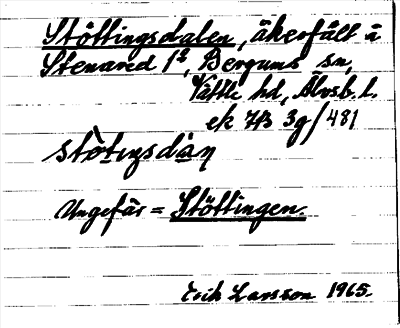 Stöttingsdalen, åkerfält å
Stenared 1², Bergums sn,
Vättle hd, Älvsb. l.
ek 7B 3g/481
stòtıŋsdàn
Ungefär = Stöttingen.
Erik Larsson 1965.